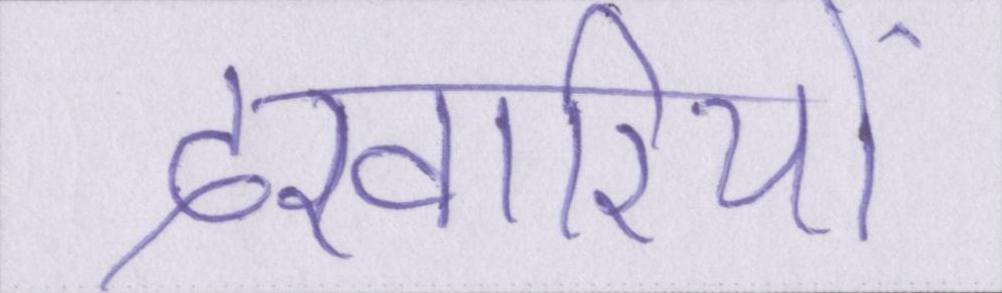 दरवारियों